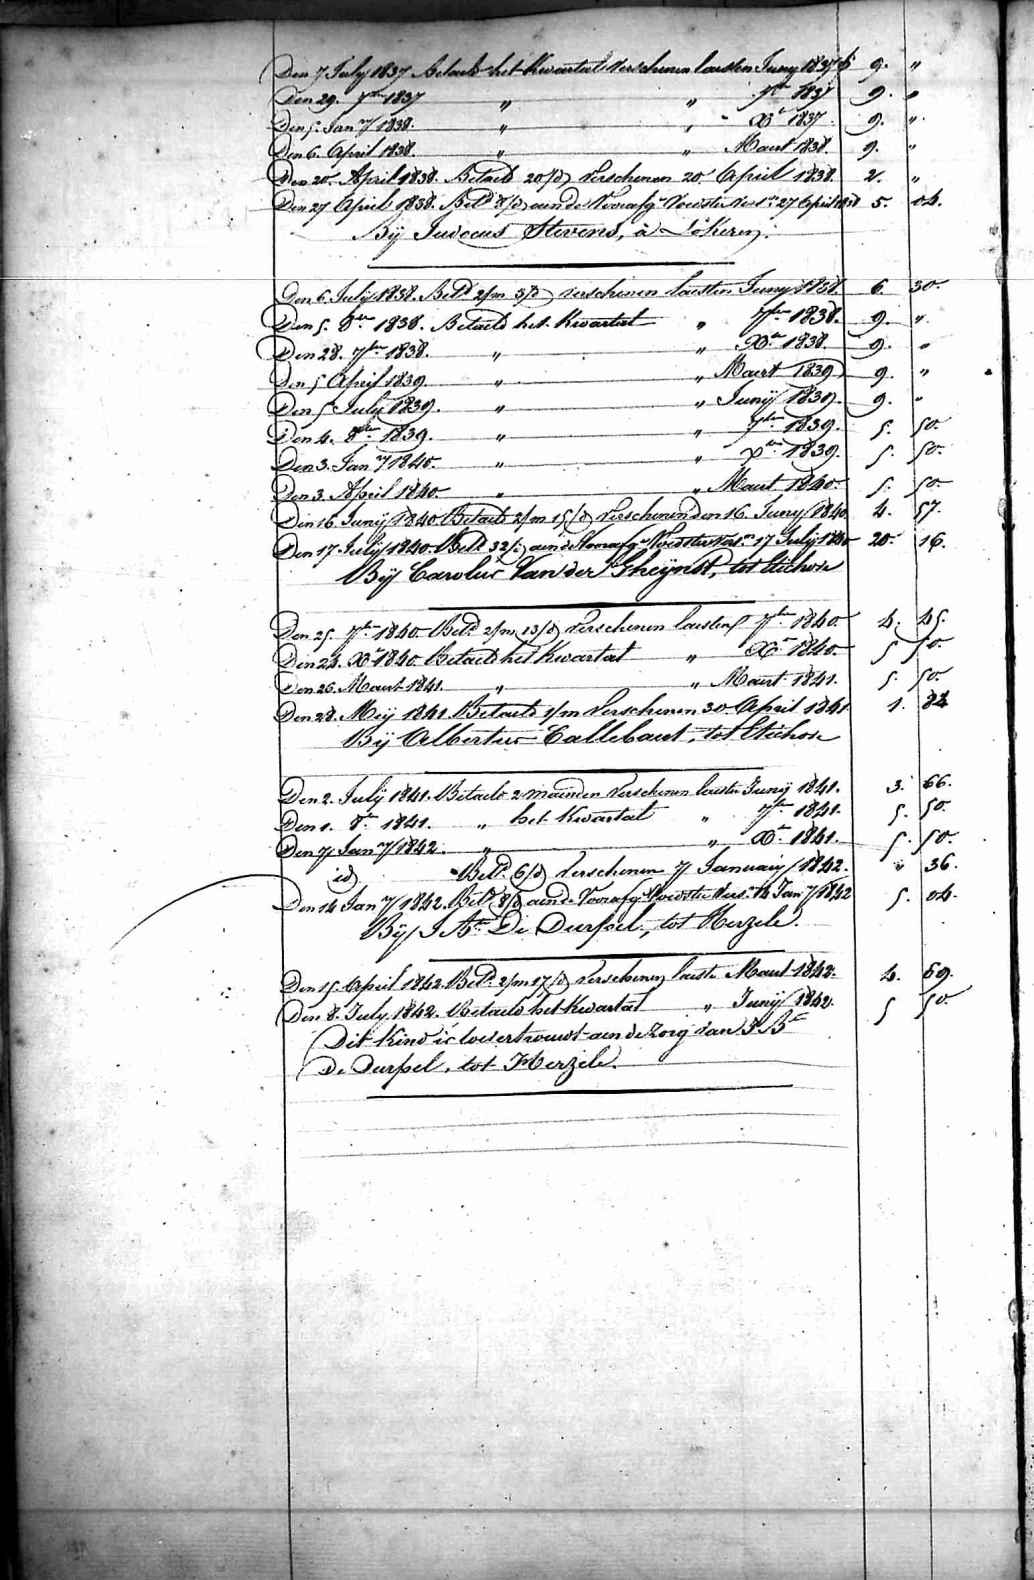 Den 7 July 1837 Betaeld het Kwartal verschenen laesten Juny 1837 f 9. "
Den 29. 7ber 1837 " " 7ber 1837 9. "
Den 5. Jany 1838. " " Xber 1837. 9. "
Den 6. April 1838. " " Maert 1838. 9. "
Den 20. April 1838. Betaeld 20/d verschenen 20. April 1838. 2. "
Den 27 April 1838. Betd 8/d aen de Voorafge Voedster vern 27 April 1838 5. 04.
Bÿ Judocus Stevens, à Lokeren.
Den 6. July 1838. Betd 2/m 3/d verschenen laesten Juny 1838. 6. 30.
Den 5. 8ber 1838. Betaeld het Kwartal " 7ber 1838. 9. "
Den 28. 7ber 1838. " " Xber 1838. 9. "
Den 5 April 1839. " " Maert 1839 9. "
Den 5 July 1839. " " Junÿ 1839. 9. "
Den 4. 8ber 1839. " " 7ber 1839. 5. 50.
Den 3. Jany 1840. " " Xber 1839. 5. 50.
Den 3. April 1840. " " Maert 1840. 5. 50.
Den 16. Junÿ 1840. Betaeld 2/m 15/d verschenen den 16. Juny 1840 4. 57.
Den 17. Julÿ 1840. Betd 32/d aen de Voorafge Voedster vern 17 July 1840 20. 16.
Bÿ Carolus Van der Gheynst, tot Etichove
Den 25. 7ber 1840. Betd 2/m 13/d verschenen laesten 7ber 1840. 4. 45.
Den 24. Xber 1840 Betaeld het Kwartal " Xber 1840. 5 50.
Den 26. Maert 1841. " " Maert 1841. 5. 50.
Den 28. Meÿ 1841 Betaeld 1/m verschenen 30 April 1841 1. 84
Bÿ Albertus Callebaut, tot Etichove
Den 2. Julÿ 1841. Betaeld 2 maenden verschenen laeste Junÿ 1841. 3. 66.
Den 1. 8ber 1841. " het Kwartal " 7ber 1841. 5. 50.
Den 7 Jany 1842. " " Xber 1841. 5. 50.
id Betd 6/d verschenen 7 January 1842. " 36.
Den 14 Jany 1842. Betd 8/d aen de Voorafge Voedster vern 14 Jany 1842 5. 04.
Bÿ J Bte De Durpel, tot Herzele.
Den 15. April 1842. Betd 2/m 17/d verschenen laeste Maert 1842. 4. 69.
Den 8. July. 1842. Betaeld het Kwartal " Junÿ 1842 5 50
Dit Kind is toevertrouwt aen de zorg van J Bte
De Durpel, tot Herzele.